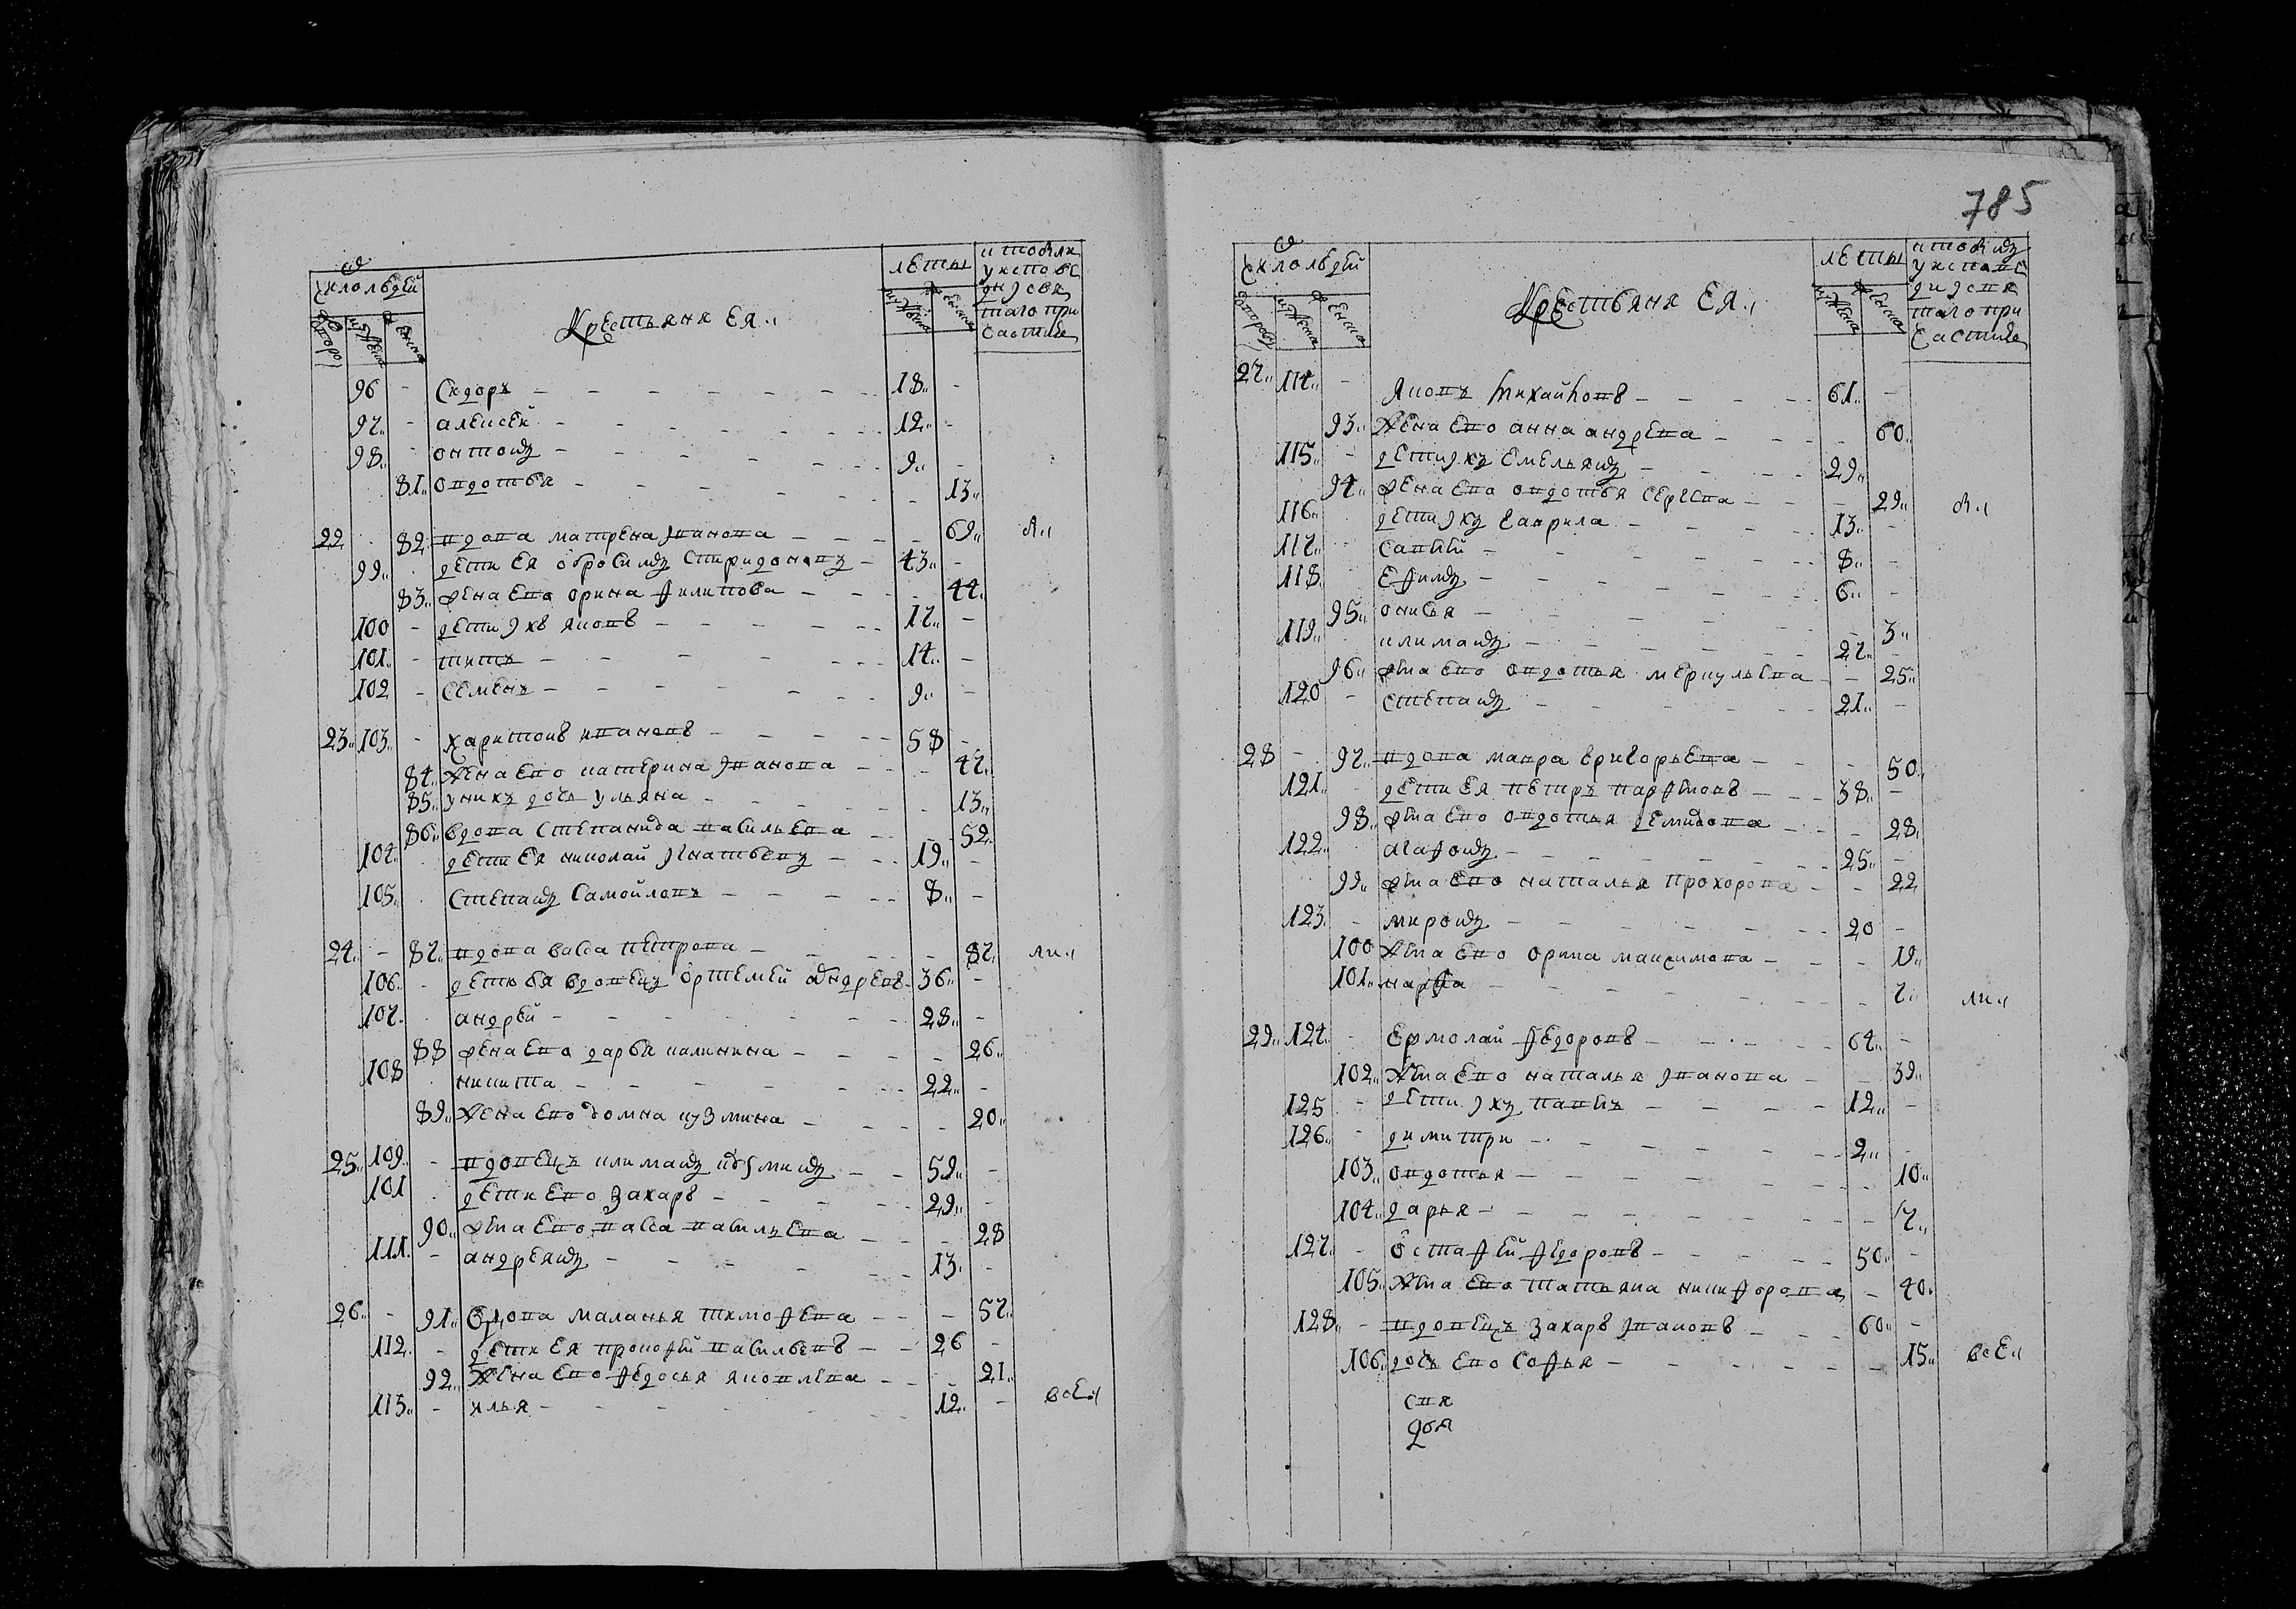 число людей
дворовъ
мужеска
женска
Крестьяня ея
лѣты
мужеска
женска
кто были
у исповѣ
ди и свя
таго при
частия
96 - Сидоръ - 18 -
97 - алексей - 12 -
98 - онтонъ - 9 -
81 овдотья - 13
22 82 вдова матрена иванова - 69 были
99 дети ея обросимъ спиридоновъ - 43 -
83 жена ево орина филипова - 44
100 - дети ихъ яковъ - 17 -
101 - титъ - 14 -
102 - семенъ - 9 -
23 103 - харитонъ ивановъ - 58 -
84 жена ево катерина иванова - 47
85 у нихъ дочь ульяна - 13
86 вдова степанида васильева - 52
104 дети ея николай игнатьевъ - 19 -
105 степанъ самойловъ - 8 -
24 - 87 вдова васса петрова - 87
106 - дети ея вдовецъ ортемей андреевъ 36 -
107 андрей - 28 -
88 жена ево дарья калинина - 26
108 никита - 22 -
89 жена ево домна кузмина - 20
25 109 - вдовецъ климанъ кузминъ - 59 -
101 дети ево захаръ - 29 -
90 жена ево васса васильева - 28
111 - андреянъ - 13 -
26 - 91 вдова маланья тимофева - 57
112 - дети ея прокофей васильевъ - 26 -
92 жена ево федосья яковлева - 21
113 - илья - 12 - все
785
число людей
дворовъ
мужеска
женска
Крестьяня ея
лѣты
мужеска
женска
кто были
у исповѣ
ди и свя
таго при
частия
27 114 - яковъ михайловъ - 61 -
93 жена ево анна андрева - 60
115 - дети ихъ емельянъ - 29
94 жена ево овдотья сергева - 29
116 дети ихъ гаврила - 13 -
117 савелей - 8 -
118 ефимъ - 6 -
95 - 3
119 климанъ - 27 -
96 жена ево овдотья меркульева - 25
120 - степанъ - 21 -
28 - 97 вдова мавра григорьева - 50
121 - дети ея петръ парфеновъ - 38 -
98 жена ево овдотья демидова - 28
122 агафонъ - 25 -
99 жена ево наталья прохорова - 22
123 - миронъ - 20 -
100 жена ево орина максимова - 19
101 марфа - 7
29 124 - ермолай федоровъ - 64 -
102 жена ево наталья иванова - 39
125 - дети ихъ павелъ - 12 -
126 - димитри - 2 -
103 овдотья - 10
104 дарья - 7
127 - остафей федоровъ - 50 -
105 жена ево татьяна никифорова - 40
128 - вдовецъ захаръ ивановъ - 60 -
106 дочь ево софья - 15 все